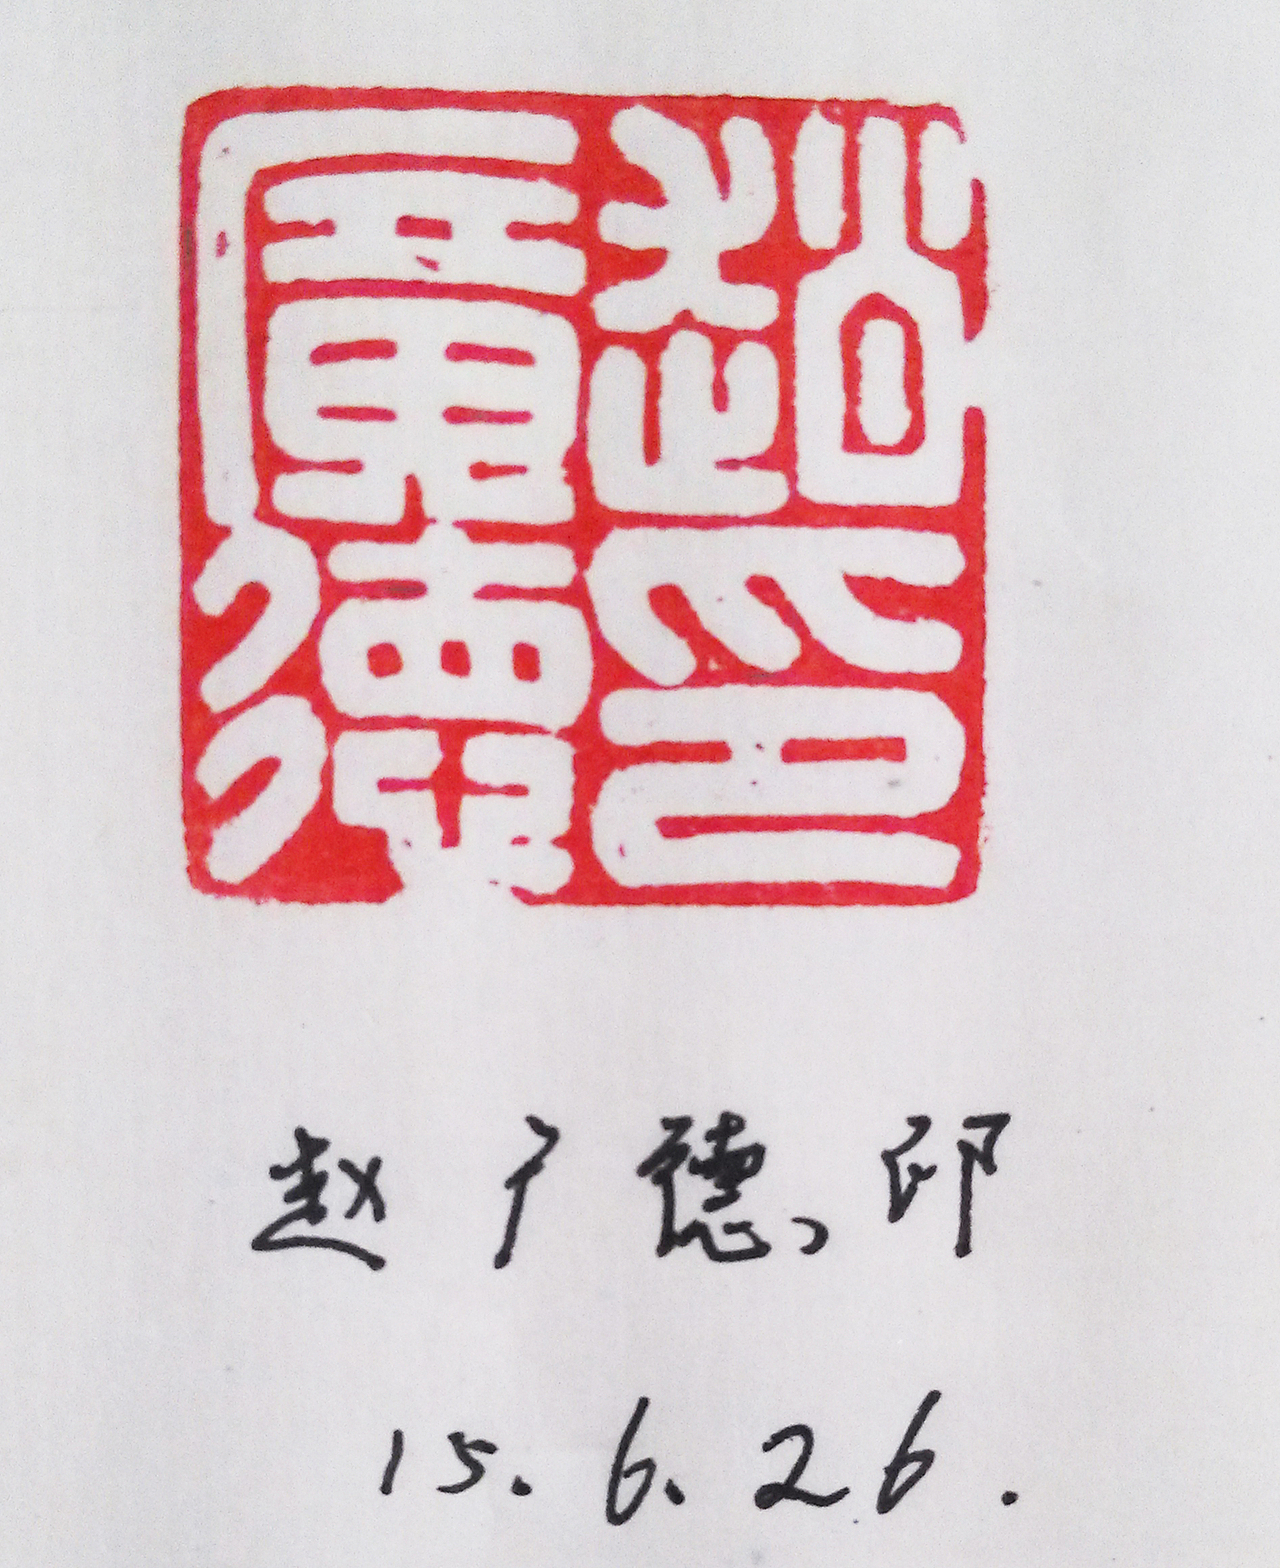 趙印
廣德
赵广德印
15.6.26.